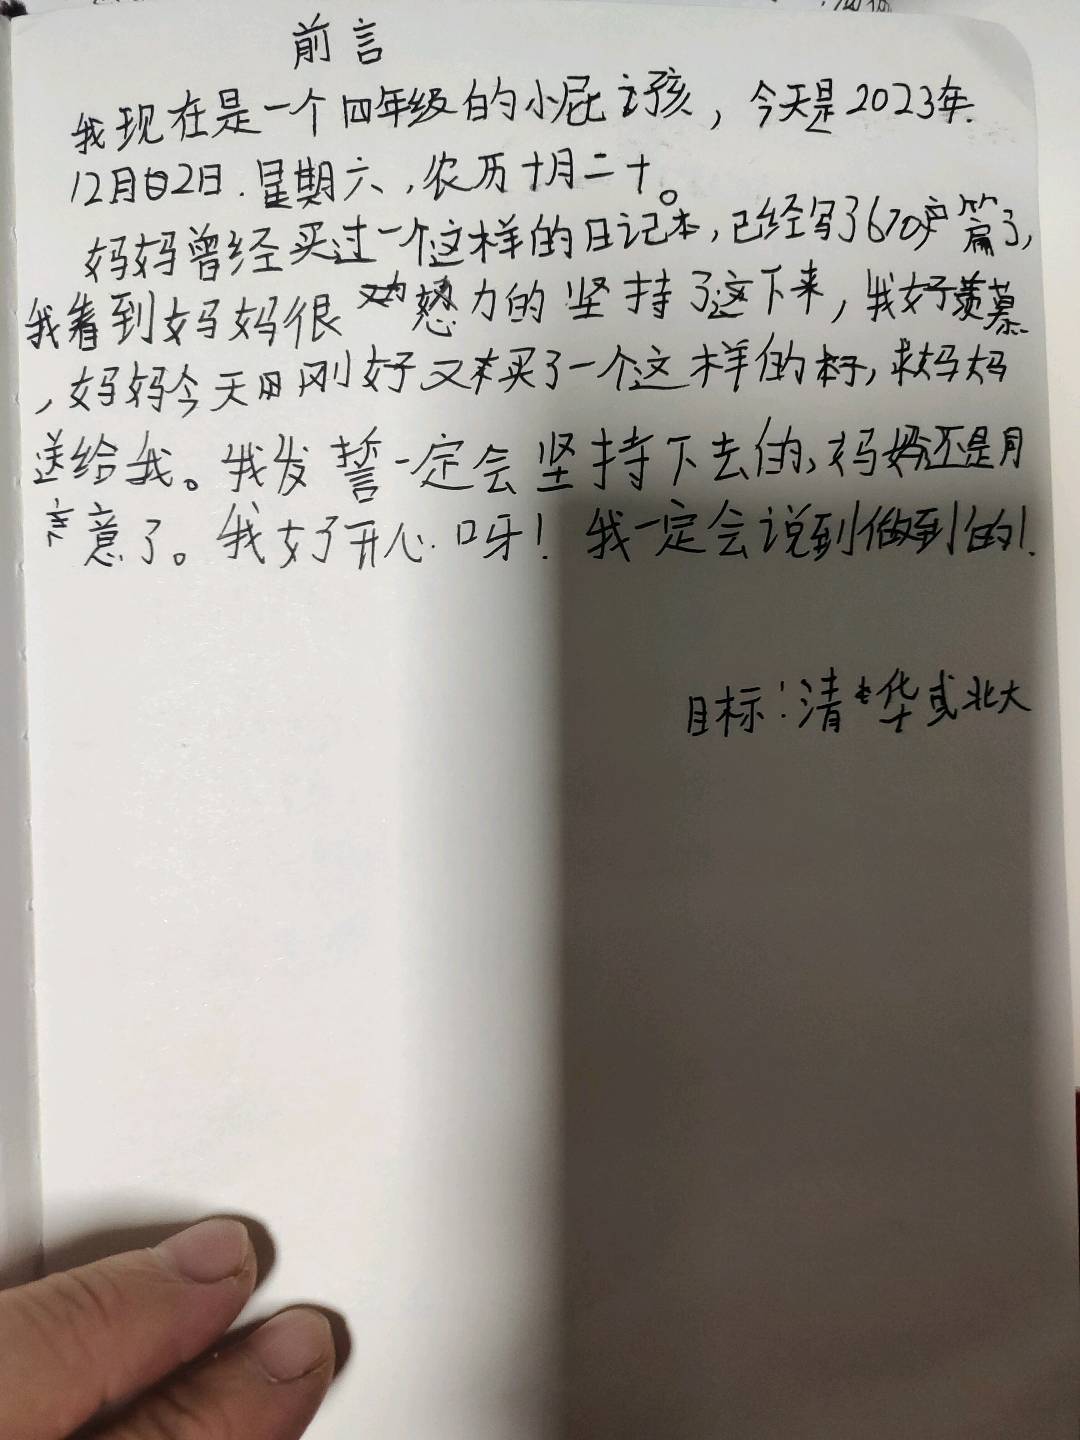 前言
我现在是一个四年级的小屁孩，今天是2023年
12月2日.星期六,农历十月二十。
妈妈曾经买过一个这样的日记本，已经写了670篇了，
我看到妈妈很力的坚持了这下来，我好羡慕
，妈妈今天刚好又买了一个这样的本子，求妈妈
送给我。我发誓一定会坚持下去的，妈妈还是
意了。我好开心呀！我一定会说到做到的！
目标：清华或北大